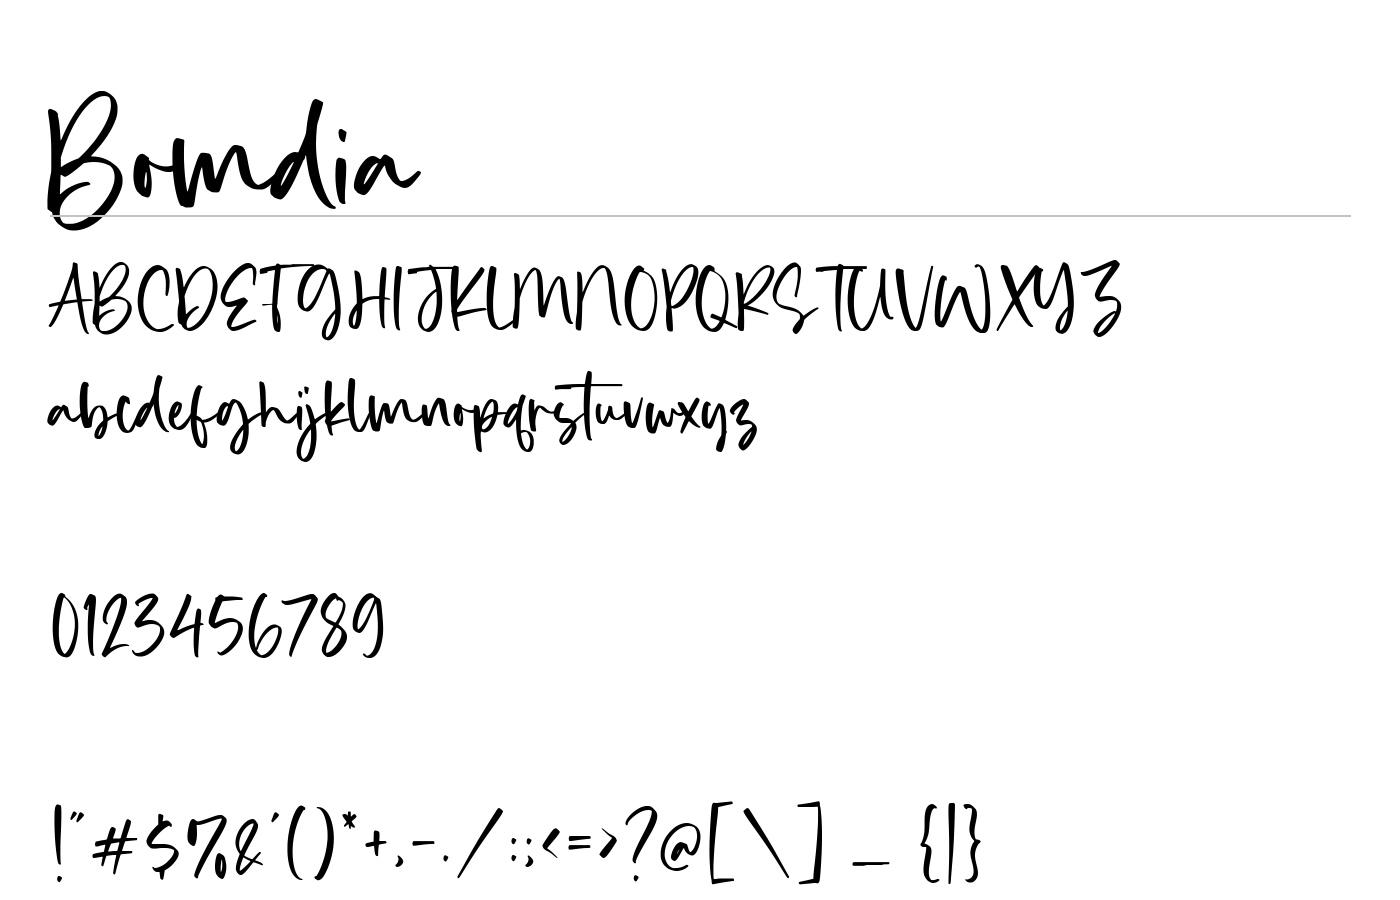 Bomdia
ABCDEFGHIJKLMNOPQRSTUVWXYZ
abcdefghijklmnopqrstuvwxyz
0123456789
!"#$%&'()*+,-./:;<=>?@[\]_{|}